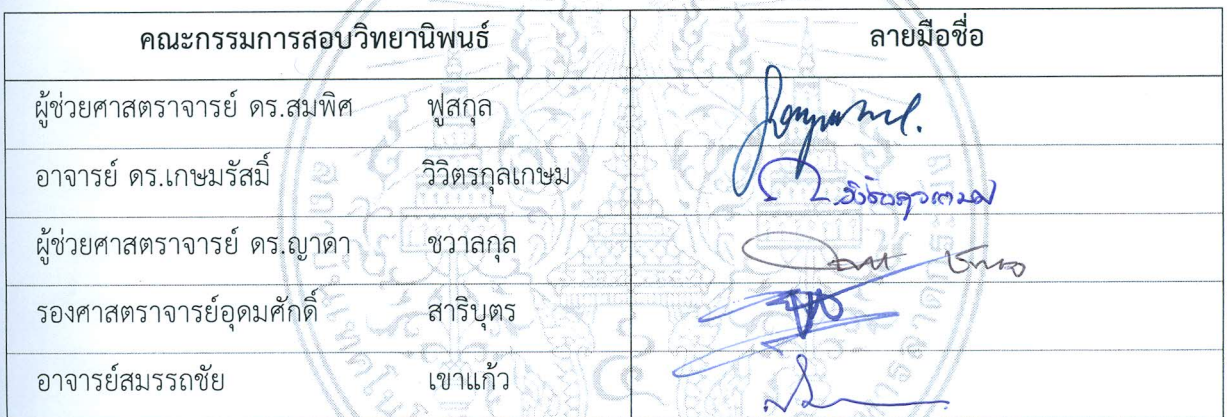 คณะกรรมการสอบวิทยานิพนธ์ ลายมือชื่อ
ผู้ช่วยศาสตราจารย์ ดร.สมพิศ ฟูสกุล
อาจารย์ ดร.เกษมรัสมิ์ วิวิตรกุลเกษม
ผู้ช่วยศาสตราจารย์ ดร.ญาดา ชวาลกุล
รองศาสตราจารย์อุดมศักดิ์ สาริบุตร
อาจารย์สมรรถชัย เขาแก้ว